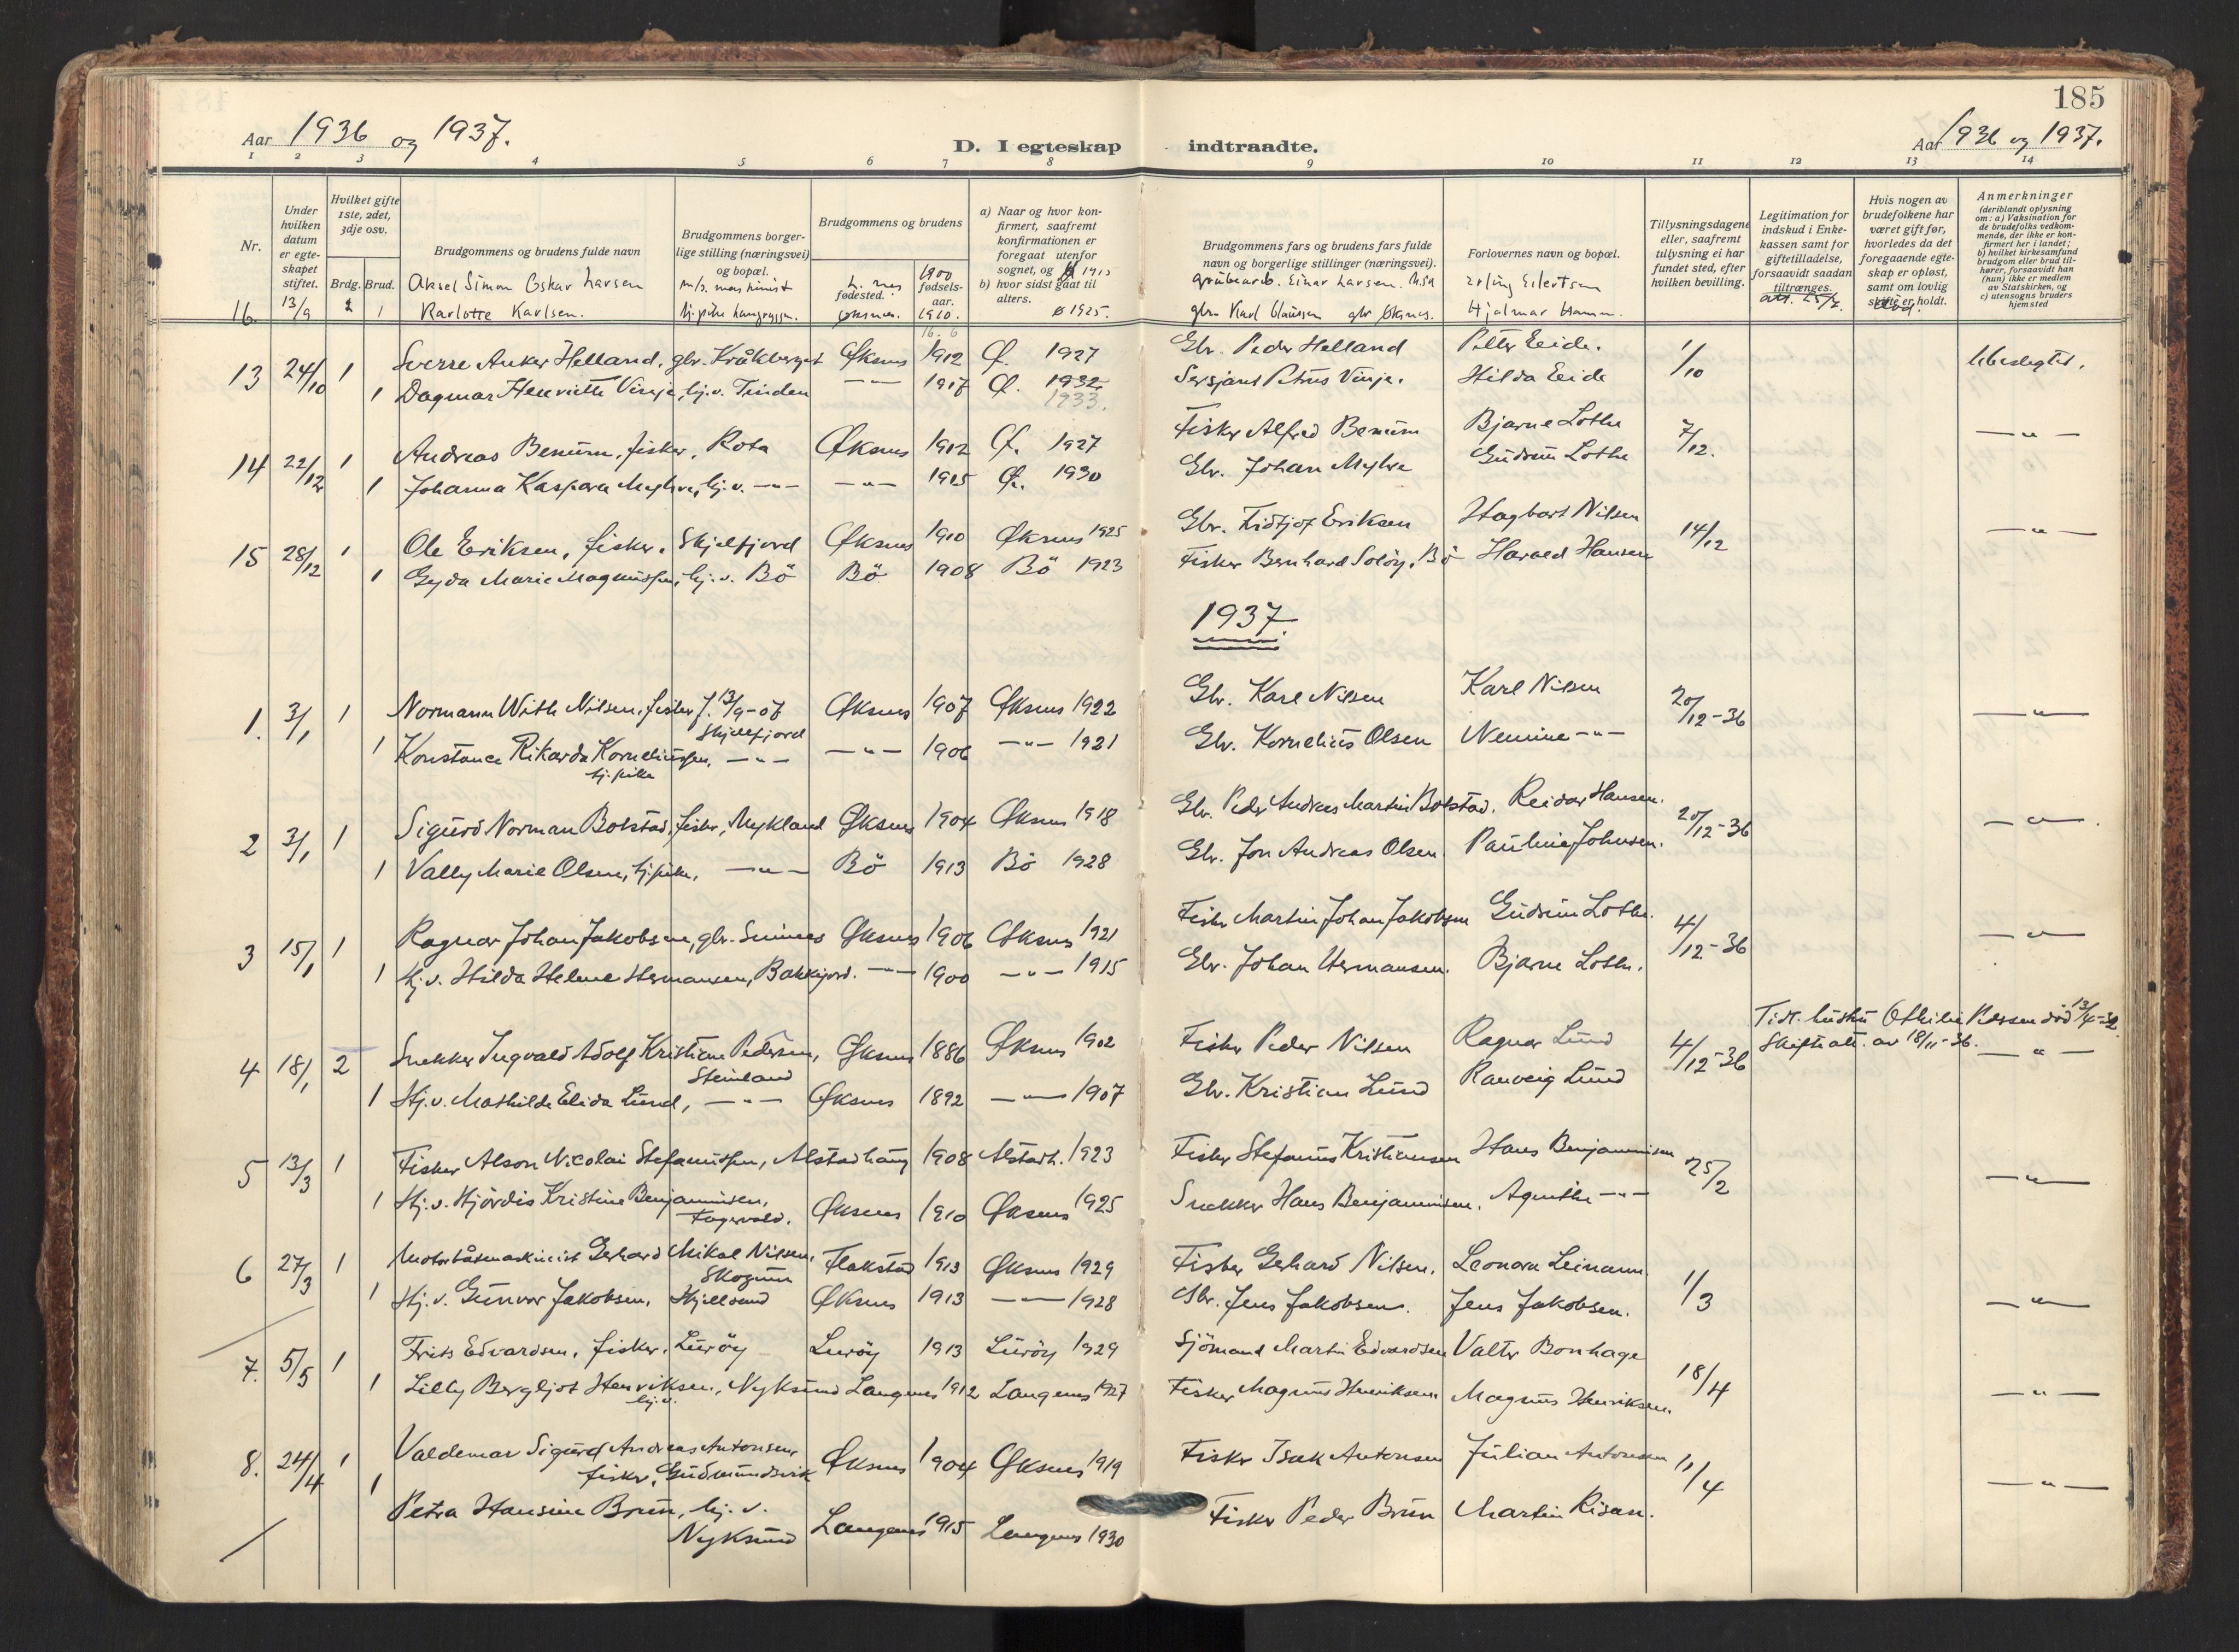 185
Aar 1936 og 1937.
D. I egteskap indtraadte.
Aar 1936 og 1937.
1 2 3 4 5 6 7 8 9 10 11 12 13 14
Nr.
Under hvilken datum er egteskapet stiftet.
Hvilket gifte 1ste, 2det, 3dje osv.
Brdg. Brud.
Brudgommens og brudens fulde navn
Brudgommens borgerlige stilling (næringsvei) og bopæl.
Brudgommens og brudens
fødested.
fødselsaar.
a) Naar og hvor konfirmert, saafremt konfirmationen er foregaat utenfor sognet, og
b) hvor sidst gaat til alters.
Brudgommens fars og brudens fars fulde navn og borgerlige stillinger (næringsvei).
Forlovernes navn og bopæl.
Tillysningsdagene eller, saafremt tulysning ei har fundet sted, efter hvilken bevilling.
Legitimation for indskud i Enkekassen samt for giftetilladelse, forsaavidt saadan tiltrænges.
Hvis nogen av brudefolkene har været gift før, hvorledes da det foregaaende egteskap er opløst, samt om lovlig skifte er holdt.
Anmerkninger
(deriblandt oplysning om: a) Vaksination for de brudefolks vedkommende, der ikke er konfirmert her i landet; b) hvilket kirkesamfund brudgom eller brud tilhører, forsaavidt han (hun) ikke er medlem av Statskirken, og c) utensogns bruders hjemsted
Aksel Simon Oskar Larsen m/s. maskinist 1900 1915 Einar Larsen. Erling Eilertsen
16. 13/9 2 1 Karlotte Karlsen. hj. pike Øksnes. 1910. Ø 1925. gbr. Karl Claussen gbr Øksnes. Hjalmar Hamn.
13 24/10 1 Sverre Anker Helland, gbr. Kråkberget Øksnes 1912 Ø. 1927 Gbr. Peder Helland Petter Eide. 1/10 Ubeslegtet.
1 Dagmar Henriette Vinje, hj.v. Tinden -"- 1917 Ø. 1932 Sersjant Petrus Vinje. Hilda Eide
1933.
14 22/12 1 Andreas Benum, fisker, Rota Øksnes 1912 Ø. 1927 Fisker Alfred Benum Bjarne Lothe 7/12. -"-
1 Johanna Kaspara Myhre, hj.v. -"- -"- 1915 Ø. 1930 Gbr. Johan Myhre Gudrun Lothe
15 28/12 1 Ole Eriksen, fisker. Skjelfjord Øksnes 1910 Øksnes 1925 Gbr. Fidtjof Eriksen Hagbart Nilsen 14/12 -"-
1 Gyda Marie Magnussen, hj.v. Bö Bö 1908 Bö 1923 Fisker Bernhard Solöy, Bö Harald Hansen
1937.
1. 3/1 1 Normann With Nilsen, fisker f. 13/9-07 Øksnes 1907 Øksnes 1922 Gbr. Karl Nilsen Karl Nilsen 20/12-36 -"-
Skjelfjord
1 Konstance Rikarda Korneliussen, -"- -"- 1906 -"- 1921 Gbr. Kornelius Olsen Nemine -"-
hj. pike
2 3/1 1 Sigurd Norman Bolstad, fisker, Mykland Øksnes 1904 Øksnes 1918 Gbr. Peder Andreas Martin Bolstad. Reidar Hansen. 20/12-36 -"-
1 Vally Marie Olsen, hj.pike, -"- Bö 1913 Bö 1928 Gbr. Jon Andreas Olsen. Pauline Johnsen.
3 15/1 1 Ragnar Johan Jakobsen, gbr. Smines Øksnes 1906 Øksnes 1921 Fisker Martin Johan Jakobsen Gudrun Lothe. 4/12-36 -"-
1 Hj.v. Hilda Helene Hermansen, Bakkejord. -"- 1900 -"- 1915 Gbr. Johan Hermansen. Bjarne Lothe.
Tidl. hustru Othilie død 13/4-32
4 18/1 2 Snekker Ingvald Adolf Kristian Pedersen, Øksnes 1886 Øksnes 1902 Fisker Peder Nilsen Ragnar Lund 4/12-36 Skifteatt. av 18/11-36. -"-
Steinland
1 Hj.v. Mathilde Elida Lund, -"- Øksnes 1892 -"- 1907 Gbr. Kristian Lund Ranveig Lund
5 13/3 1 Fisker Alson Nicolai Stefanussen, Alstadhaug 1908 Alstadh. 1923 Fisker Stefanus Kristiansen Hans Benjaminsen 25/2 -"-
1 Hj.v. Hjördis Kristine Benjaminsen, Øksnes 1910 Øksnes 1925 Snekker Hans Benjaminsen. Agnethe -"-
Fagervold.
6 27/3 1 Motorbåtmaskinist Gerhard Mikal Nilsen, Flakstad 1913 Øksnes 1929 Fisker Gerhard Nilsen. Leonora Leinann. 1/3 -"-
Skogsøen
1 Hj.v. Gunvor Jakobsen, Skjellsund Øksnes 1913 -"- 1928 Gbr. Jens Jakobsen. Jens Jakobsen.
7. 5/5 1 Frits Edvardsen, fisker, Luröy Luröy 1913 Luröy 1929 Sjömand Martin Edvardsen Valter Bonhage 18/4 -"-
1 Lilly Bergljot Henriksen, Nyksund Langenes 1912 Langenes 1927 Fisker Magnus Henriksen Magnus Henriksen.
hj.v.
8. 24/4 1 Valdemar Sigurd Andreas Antonsen, Øksnes 1904 Øksnes 1919 Fisker Isak Antonsen Julian Antonsen 11/4 -"-
fisker, Gudmundsvik
1 Petra Hansine Brun, hj.v. Langenes 1915 Langenes 1930 Fisker Peder Brun Martin Risan.
Nyksund